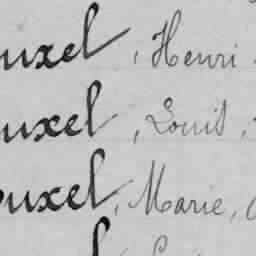 ouxel, Henri
ouxel, Louis,
ouxel, Marie,